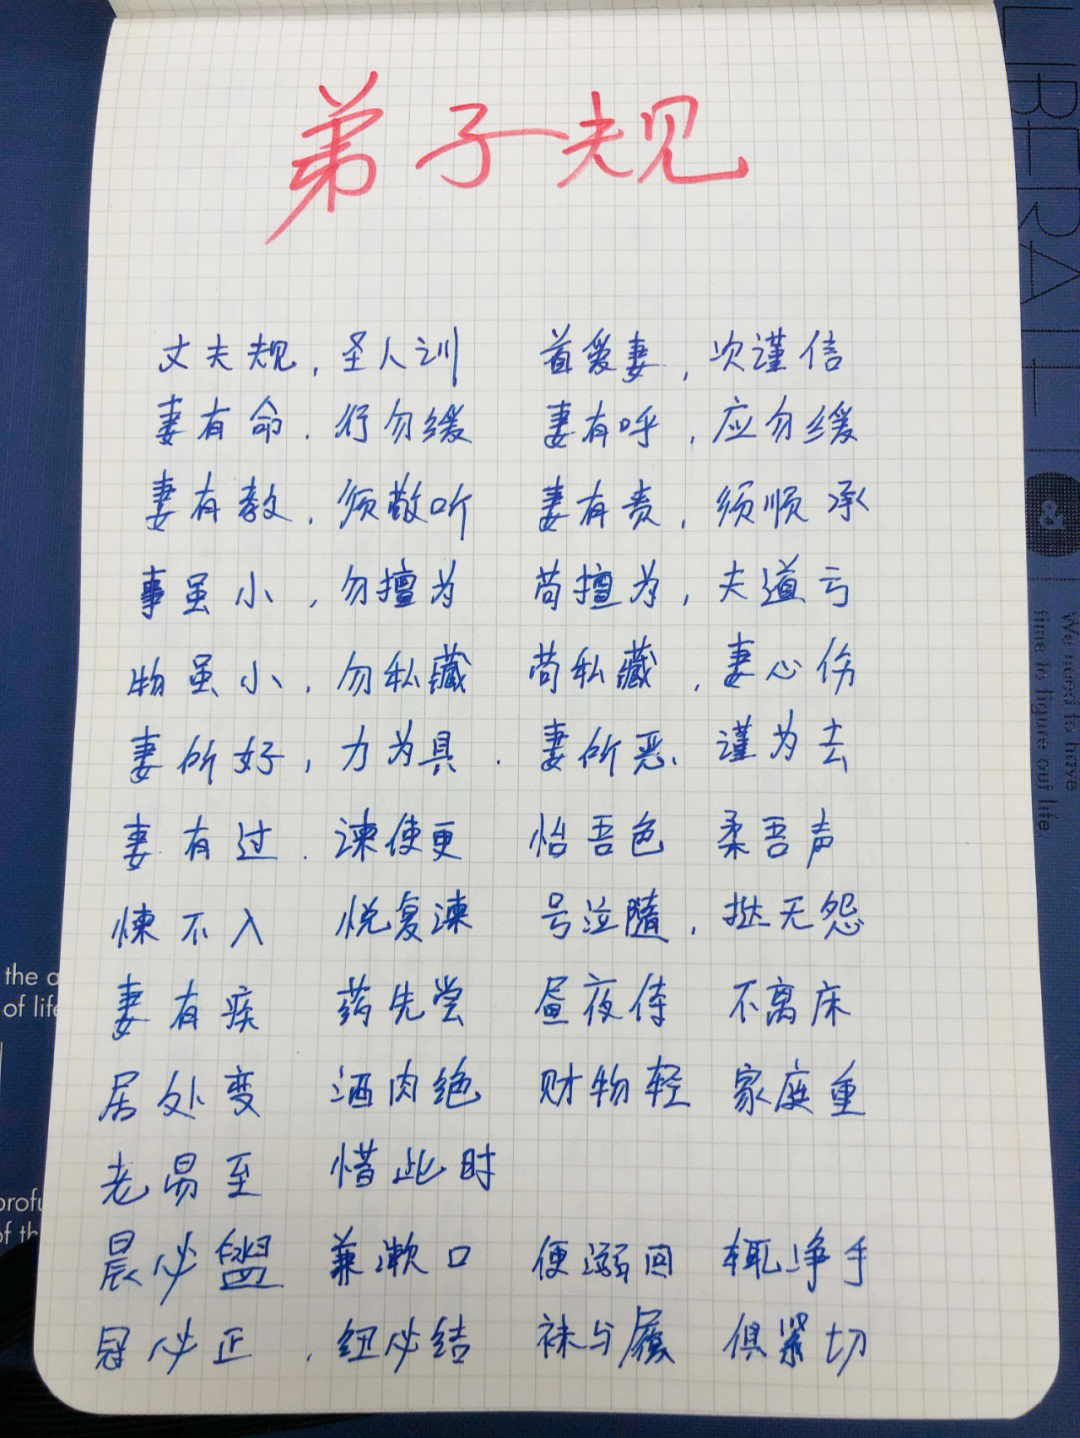 弟子规
丈夫规，圣人训 首爱妻，次谨信
妻有命，行勿缓 妻有呼，应勿缓
妻有教，须敬听 妻有责，须顺承
事虽小，勿擅为 苟擅为，夫道亏
物虽小，勿私藏 苟私藏，妻心伤
妻所好，力为具．妻所恶、谨为去
妻有过．谏使更 怡吾色 柔吾声
悚不入 悦复谏 号泣隨，挞无怨
妻有疾 药先尝 昼夜侍 不离床
居处变 酒肉绝 财物轻 家庭重
老易至 惜此时
晨必盥 兼漱口 便溺回 辄净手
冠必正，纽必结 袜与履 俱紧切
LIBERAL
&
We need to have
time to figure out life.
the a
of life
profu
of th